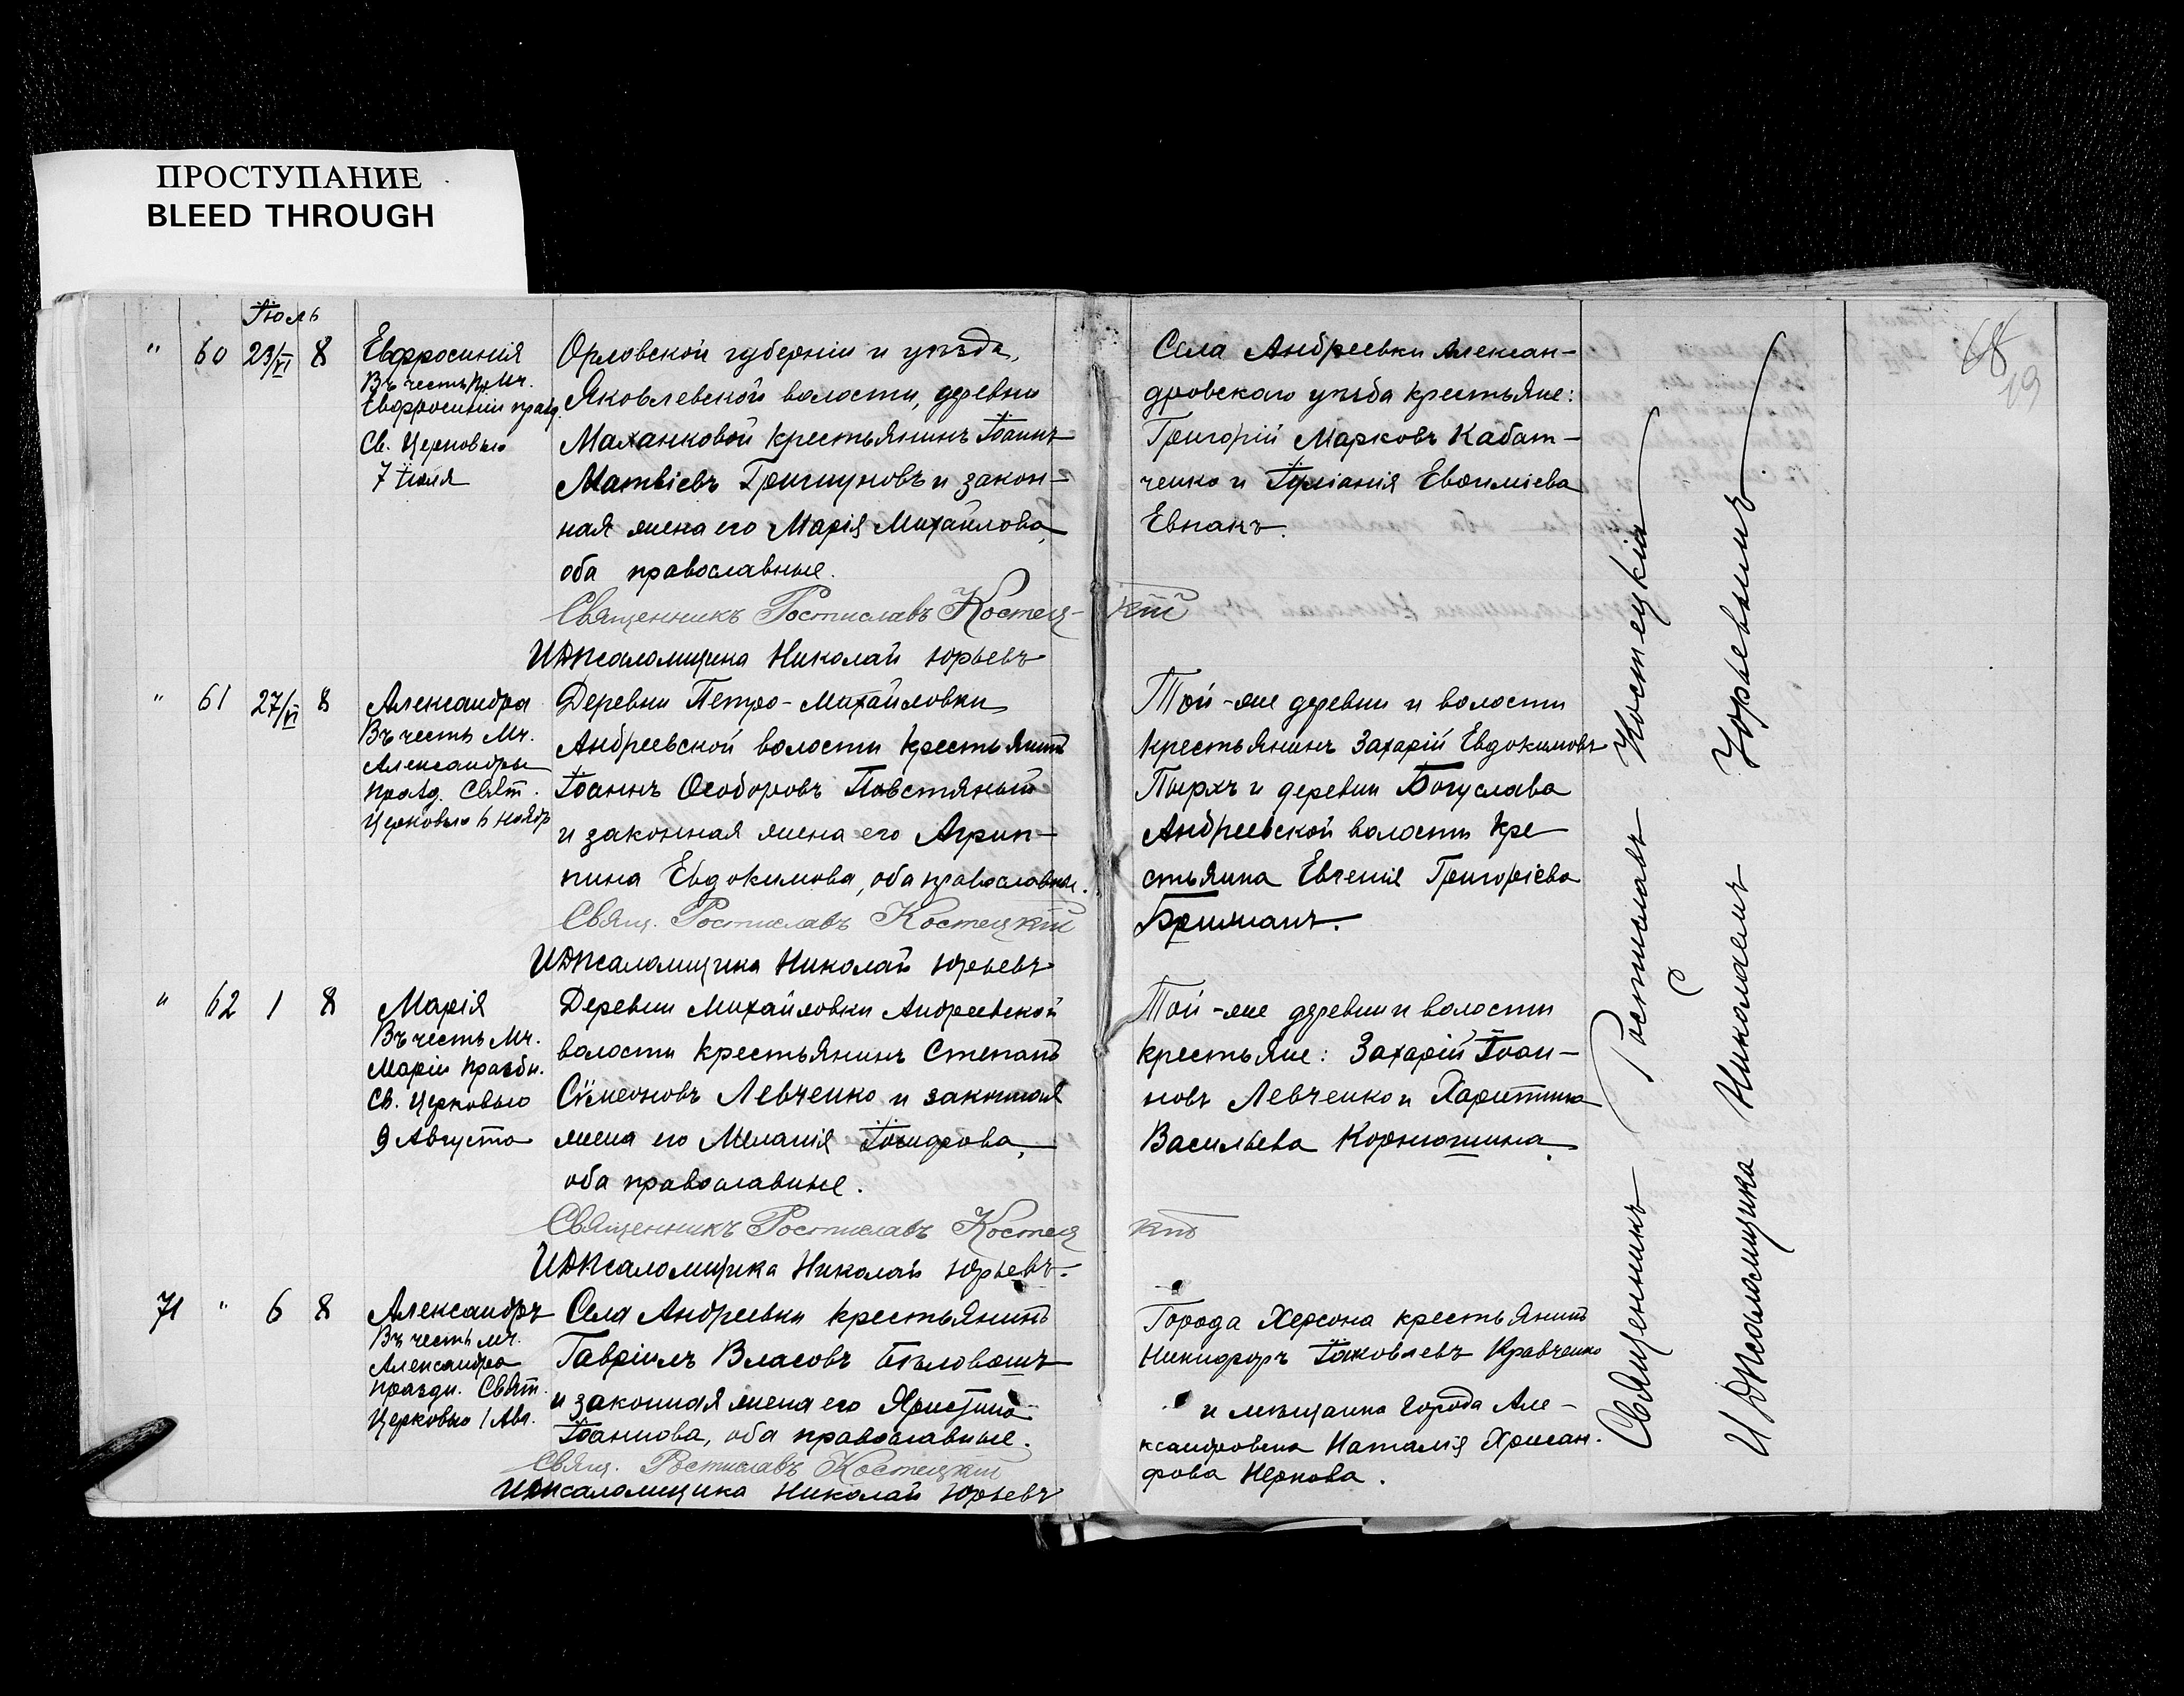 ПРОСТУПАНИЕ
BLEED THROUGH
68
19
Іюль
" 60 23/VI 8 Евфросинія
Въ честь Пр. Мч.
Евфросиніи празд.
Св. Церковью
7 іюля
Орловской губерніи и уѣзда,
Яковлевской волости, деревни
Маханковой крестьянинъ Іоаннъ
Матвіевъ Гришуновъ и закон-
ная жена его Марія Михайлова,
оба православные.
Священникъ Ростиславъ Костец-кій
И.д. псаломщика Николай Юрьевъ
Села Андреевки Алексан-
дровскаго уѣзда крестьяне:
Григорій Марковъ Кабат-
ченко и Іуліанія Евѳиміева
Евпакъ.
" 61 27/VI 8 Александра
Въ честь Мч.
Александры
празд. Свят.
Церковью 6 ноябр
Деревни Петро-Михайловки
Андреевской волости крестьянинъ
Іоаннъ Ѳеодоровъ Повстяный
и законная жена его Агрип-
пина Евдокимова, оба православные.
Свящ. Ростиславъ Костецкій
И.д. псаломщика Николай Юрьевъ
Той-же деревни и волости
крестьянинъ Захарій Евдокимовъ
Пырхъ и деревни Богуслава
Андреевской волости кре-
стьянка Евгенія Григоріева
Брижанъ.
" 62 1 8 Марія
Въ честь Мч.
Маріи праздн.
Св. Церковью
9 Августа
Деревни Михайловки Андреевской
волости крестьянинъ Степанъ
Сѵмеоновъ Левченко и законная
жена его Меланія
оба православные.
Священникъ Ростиславъ Костецкій
И.д. псаломщика Николай Юрьевъ.
Той-же деревни и волости
крестьяне: Захарій Іоан-
новъ Левченко и Харитина
Васильева Корнюшина.
71 " 6 8 Александръ
Въ честь мч.
Александра
праздн. Свят.
Церковью 1 Авг.
Села Андреевки крестьянинъ
Гавріилъ Власовъ Бѣловошъ
и законная жена его Христина
Іоаннова, оба православные.
Свящ. Ростиславъ Костецкій
И.д. псаломщика Николай Юрьевъ
Города Херсона крестьянинъ
Никифоръ Іаковлевъ Кравченко
и мѣщанка города Але-
ксандровска Наталія Хрисан-
фова Чернова.
Священникъ Ростиславъ Костецкій
И.д. псаломщика Николай Юрьевъ